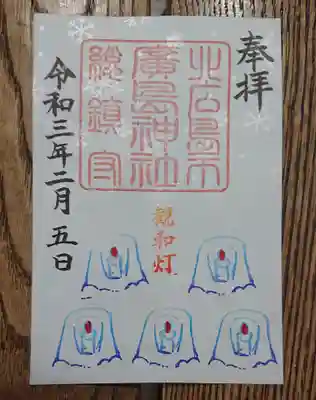 奉拝
北広島市
廣島神社
総鎮守
親和灯
令和三年二月五日